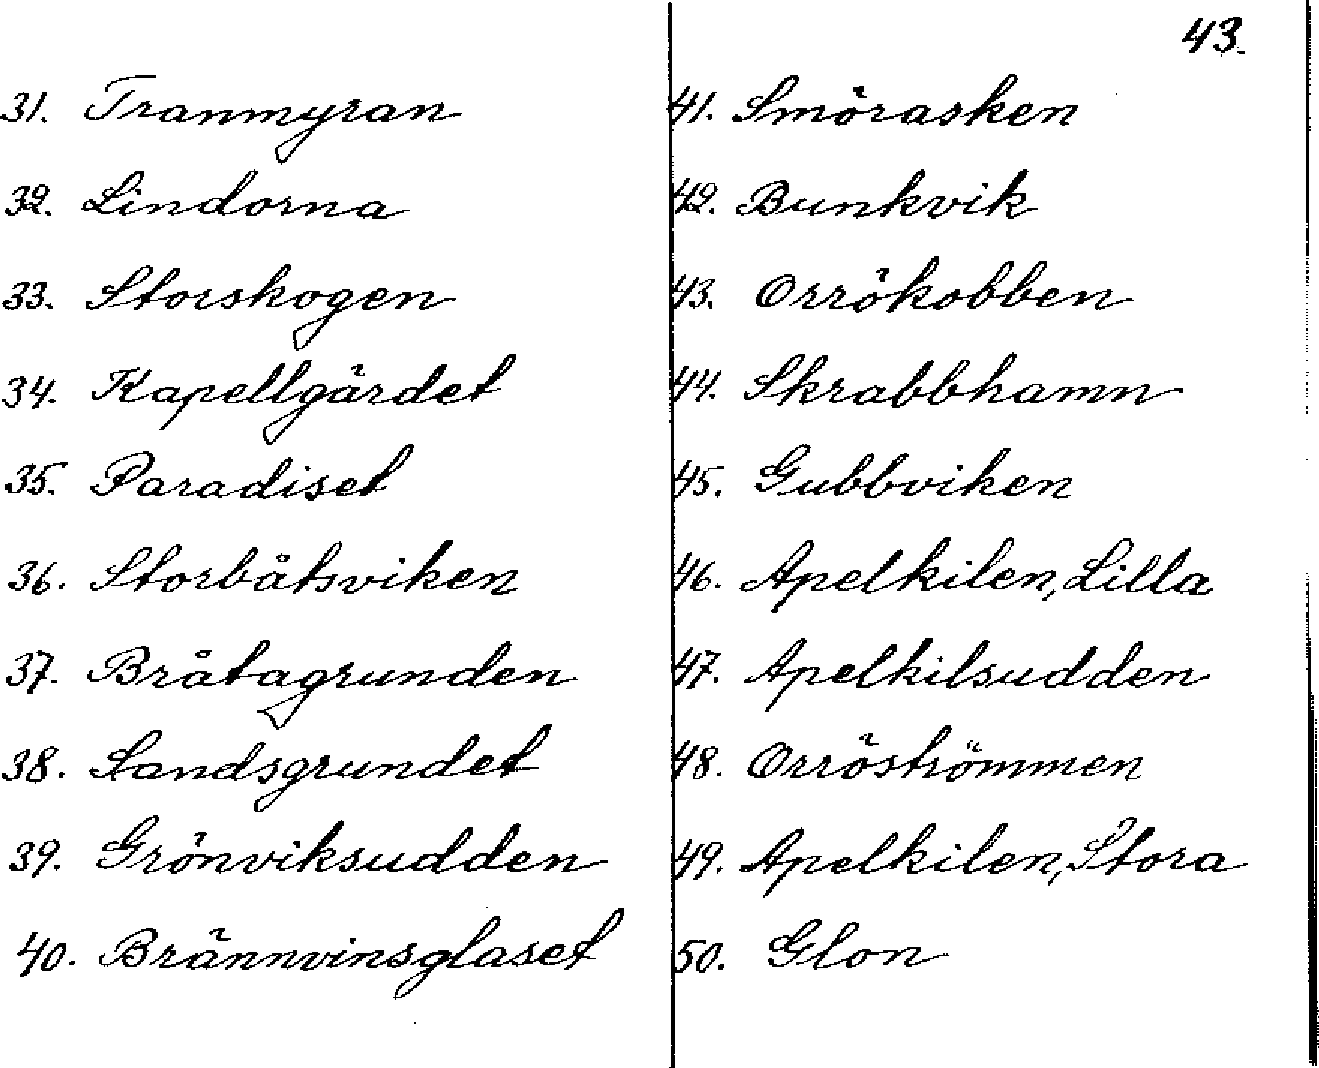 43.
31. Tranmyran
32. Lindorna
33. Storskogen
34. Kapellgärdet
35. Paradiset
36. Storbåtsviken
37. Bråtagrunden
38. Sandsgrundet
39. Grönviksudden
40. Brännvinsglaset
41. Smörasken
42. Bunkvik
43. Orrökobben
44. Skrabbhamn
45. Gubbviken
46. Apelkilen, Lilla
47. Apelkilsudden
48. Orröströmmen
49. Apelkilen, Stora
50. Glon